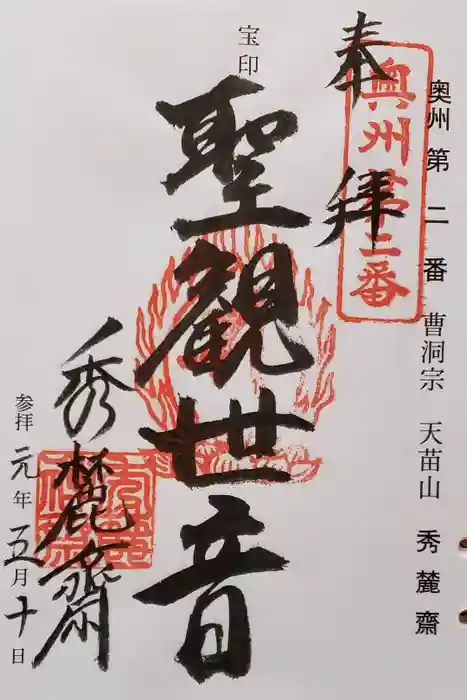 奥州第二番 曹洞宗 天苗山 秀麓齋
奉拝
奥州第二番
宝印
聖観世音
秀麓齋
参拝 元年 五月 十日